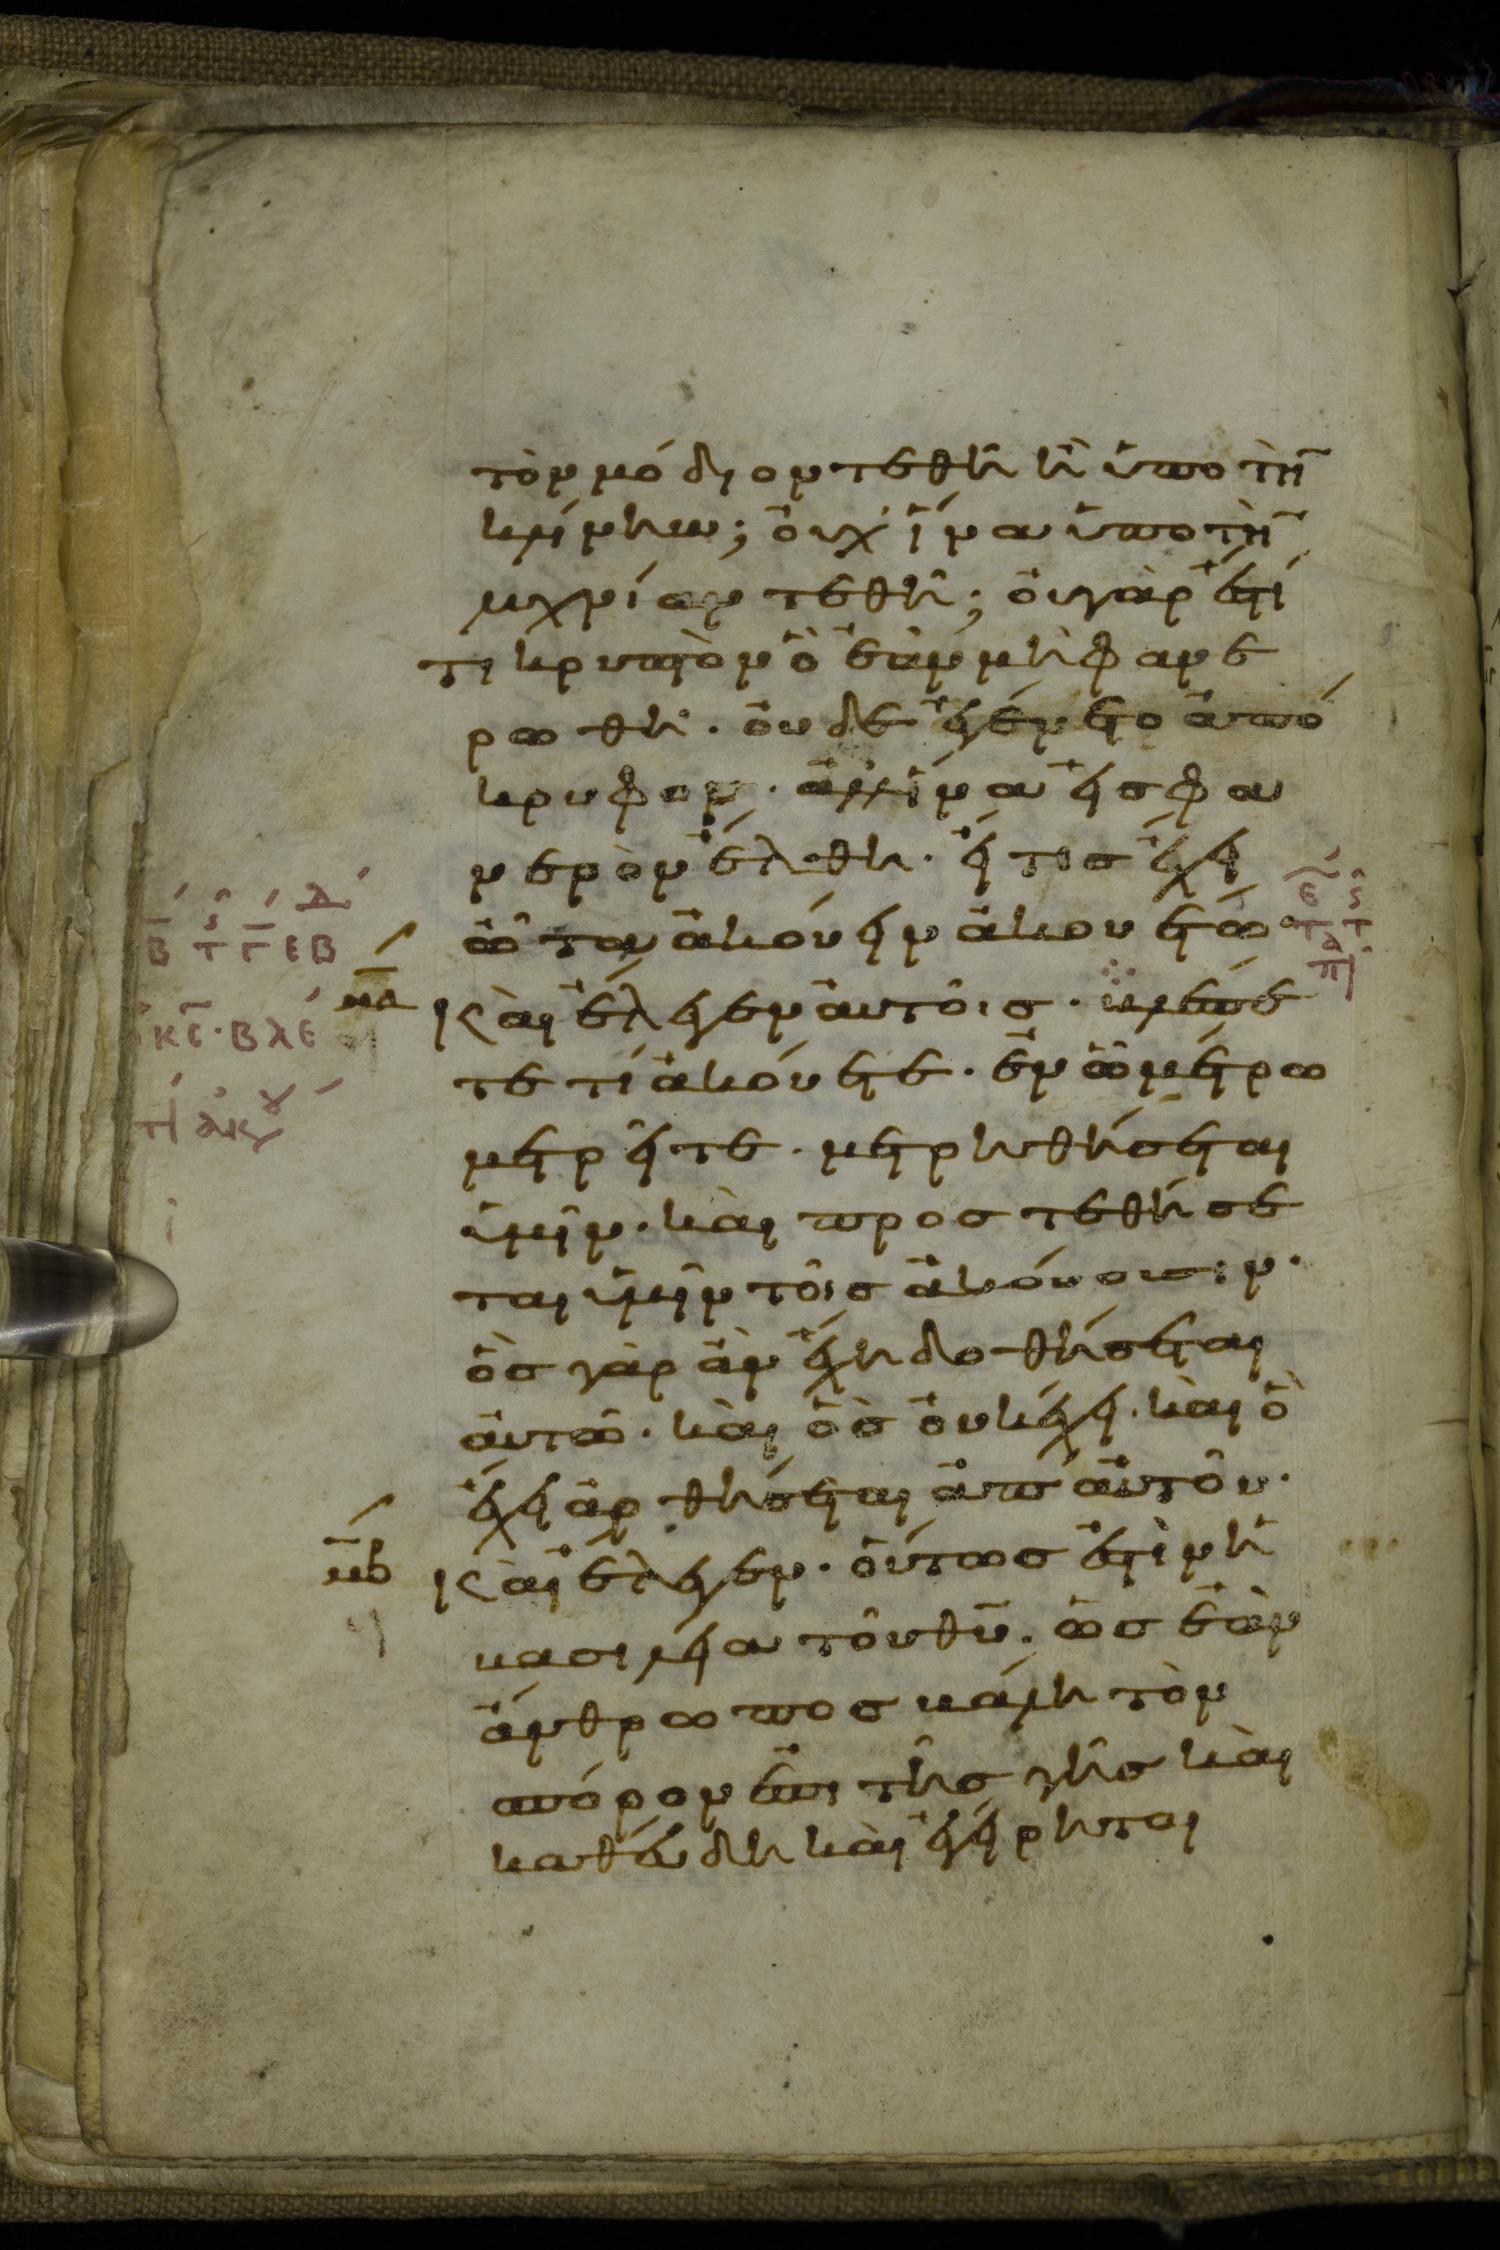 τὸν μόδιον τεθῆ ἢ ὑπο τὴ̅
κλίνην; ὀυχ ἵνα ὑπο τὴ̅
λυχνίαν τεθῆ; ὀυγὰρ ἐστί
τι κρυπτὸν ὃ ἐὰν μὴ φανε
ρωθῆ. ὀυδε ἐγένετο ἀπό
κρυφον. ἀλλ ἵνα ἐισ φα
νερὸν ἔλθη. ἔι τισ ἔχει
ὦτα ἀκούειν ἀκουετω
μα
κὰι ἔλεγεν ἀυτοῖσ. βλέπε
τε τί ἀκούετε. ἐν ὧ μέτρω
μετρεῖτε. μετρηθήσεται
ὑμῖν. κὰι προστεθήσε
ται ὑμῖν τοῖσ ἀκούουσιν.
ὃσ γὰρ ἀν ἔχη δοθήσεται
ἀυτῶ. κὰι ὃσ ὀυκ έχει. κὰι ὃ
ἔχει ἀρθήσεται ἀπ ἀυτοῦ.
μβ
κὰι ἔλεγεν. ὅυτωσ ἐστὶν ἡ
βασιλεία τοῦ θ̅υ̅. ὡσ ἐὰν
ἄνθρωποσ βάλη τὸν
σπόρον ἐπι τῆσ γῆσ κὰι
καθέυδη κὰι ἐγείρηται
Β Τ Γ ΕΒ
ΚΕ· ΒΛΕ
ΤΙ ΑΚȢ